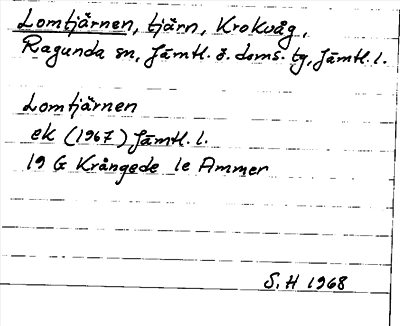 Lomtjärnen, tjärn, Krokvåg,
Ragunda sn, Jämtl. ö. doms. tg, Jämtl. l.
Lomtjärnen
ek (1967) Jämtl. l.
19 G Krångede 1e Ammer
S. H 1968